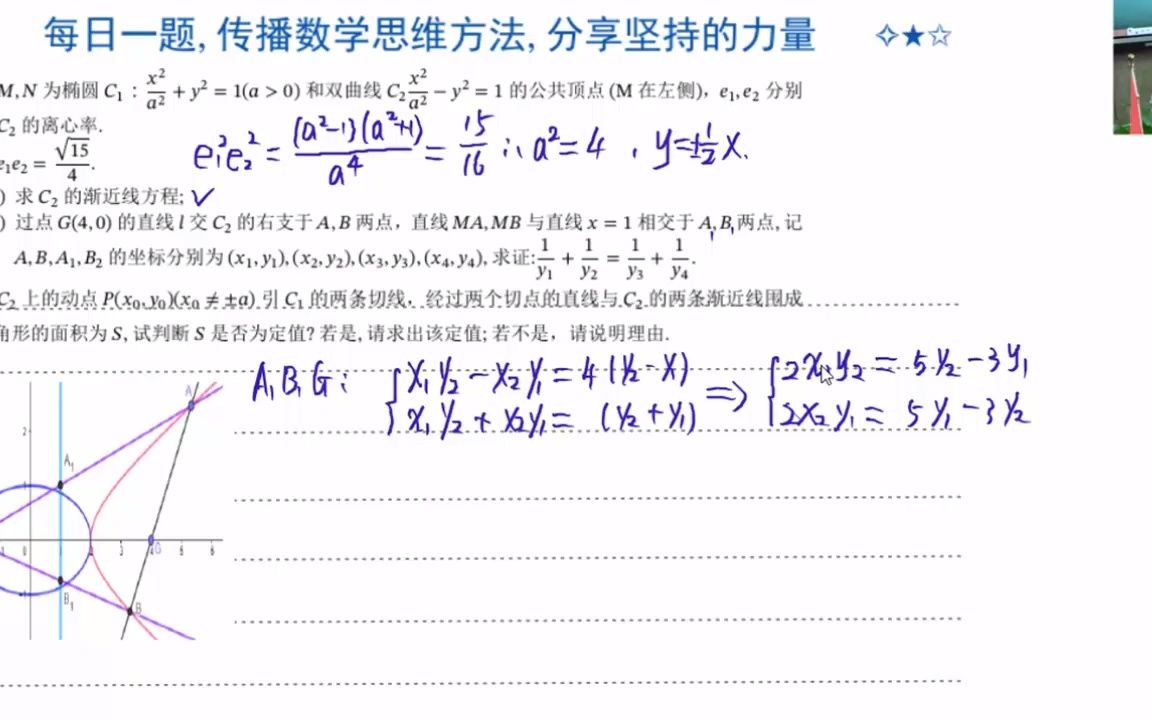 每日一题, 传播数学思维方法, 分享坚持的力量 ✧★☆
M, N 为椭圆 C₁ : x²/a² + y² = 1(a > 0) 和双曲线 C₂ x²/a² − y² = 1 的公共顶点 (M 在左侧), e₁, e₂ 分别
C₂ 的离心率.
e₁²e₂² = (a²-1)(a²+1)/a⁴ = 15/16 ∴ a² = 4 , y = ±1/2 x.
e₁e₂ = √15/4.
) 求 C₂ 的渐近线方程; ✓
) 过点 G(4,0) 的直线 l 交 C₂ 的右支于 A, B 两点, 直线 MA, MB 与直线 x = 1 相交于 A₁, B₁ 两点, 记
A, B, A₁, B₂ 的坐标分别为 (x₁, y₁), (x₂, y₂), (x₃, y₃), (x₄, y₄), 求证: 1/y₁ + 1/y₂ = 1/y₃ + 1/y₄.
C₂ 上的动点 P(x₀, y₀)(x₀ ≠ ±a) 引 C₁ 的两条切线, 经过两个切点的直线与 C₂ 的两条渐近线围成
角形的面积为 S, 试判断 S 是否为定值? 若是, 请求出该定值; 若不是, 请说明理由.
A, B, G : { x₁y₂ − x₂y₁ = 4(y₂ − y₁) ⇒ { 2x₁y₂ = 5y₂ − 3y₁
x₁y₂ + x₂y₁ = (y₂ + y₁) 2x₂y₁ = 5y₁ − 3y₂
A
2
A₁
0 1 2 3 4 G 5 6
B₁
B